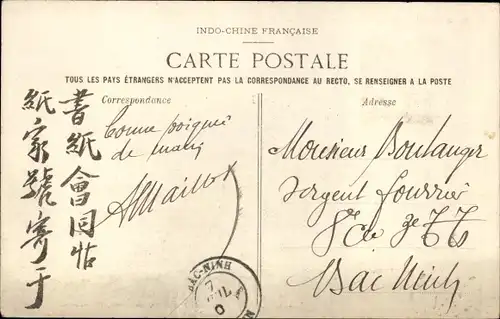 INDO-CHINE FRANÇAISE
CARTE POSTALE
TOUS LES PAYS ÉTRANGERS N'ACCEPTENT PAS LA CORRESPONDANCE AU RECTO, SE RENSEIGNER A LA POSTE
Correspondance
Bonne poignée
de main
書紙會同帖
紙家號寄于
Adresse
Monsieur Boulanger
Sergent fourrier
8e Cie 3e TT
Bac Ninh
BAC-NINH
7